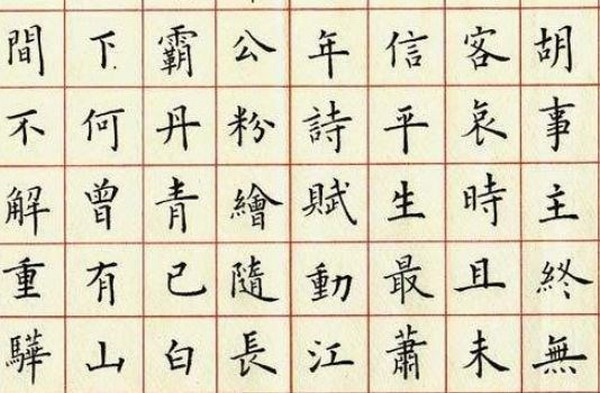 胡事主終無
客哀時且未
信平生最蕭
年詩賦動江
公粉繪隨長
霸丹青已白
下何曾有山
間不解重驊